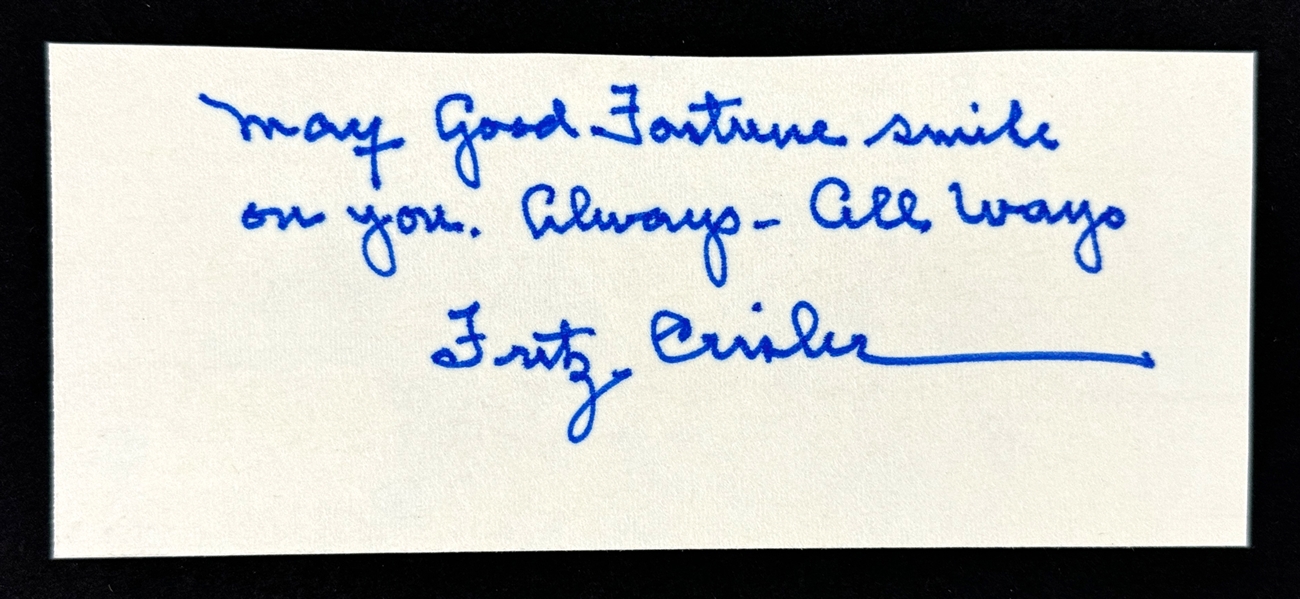 May Good Fortune smile
on you. Always - All Ways
Fritz Crisler